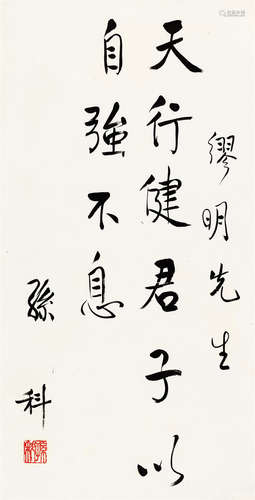 繆明先生
天行健君子以
自強不息
孫科